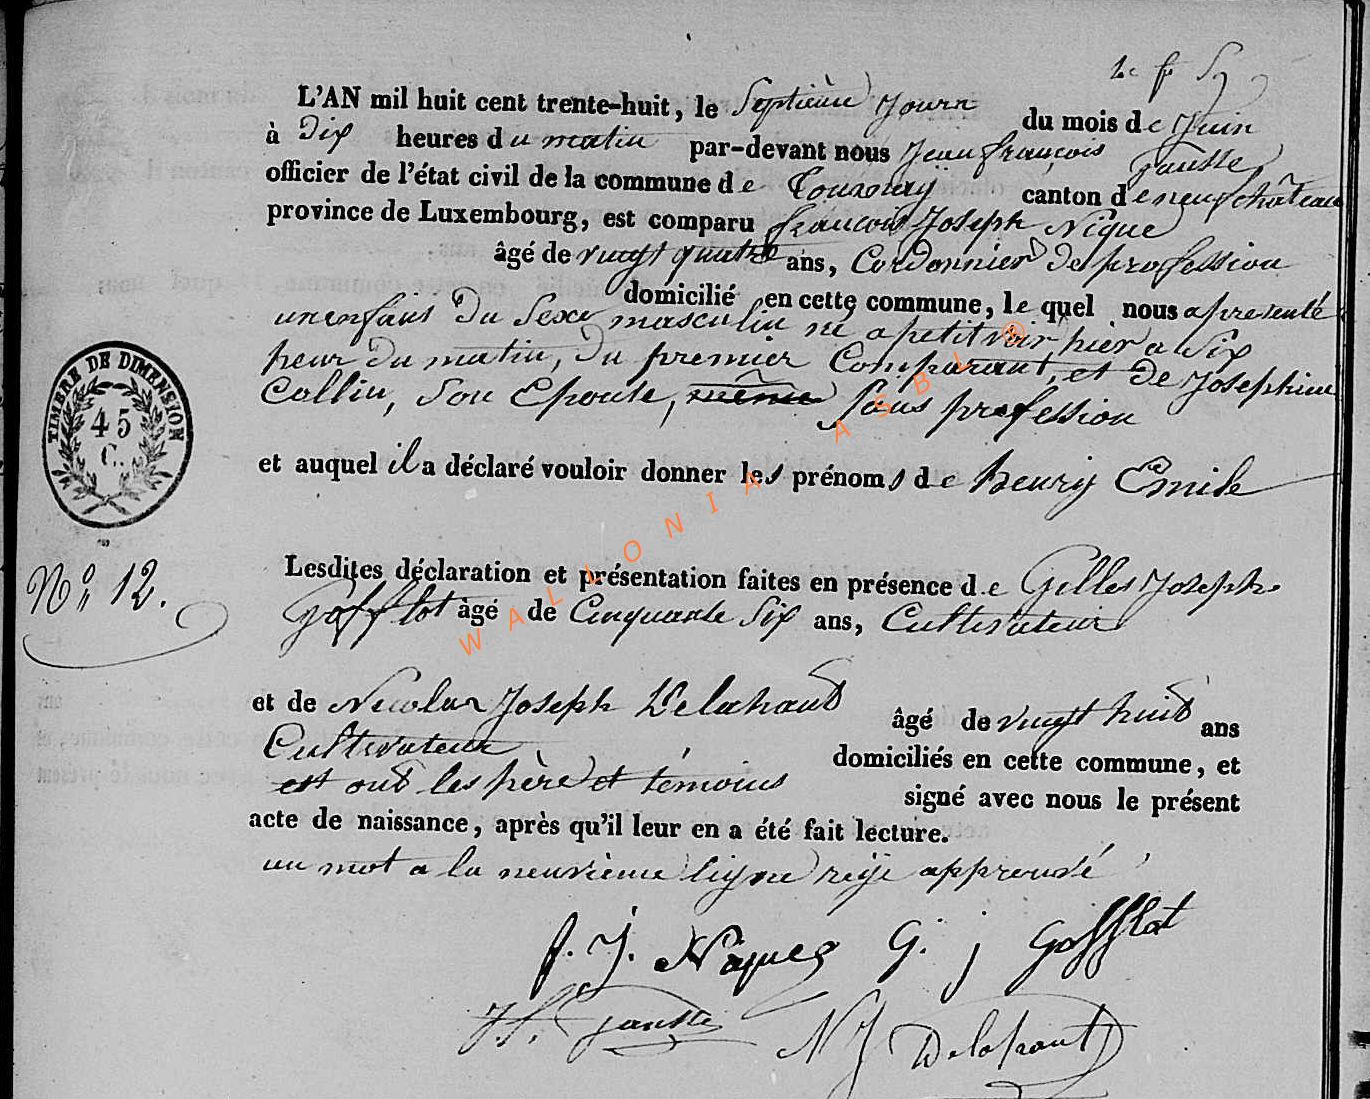 L'AN mil huit cent trente-huit, le Septième Jour du mois de Juin
à dix heures du matin par-devant nous Jean françois Gausse
officier de l'état civil de la commune de Tournay canton de neufchâteau
province de Luxembourg, est comparu françois Joseph Nique
âgé de vingt quatre ans, Cordonnier de profession
domicilié en cette commune, lequel nous a presenté
un enfant du Sexe masculin né a petitvoir hier a Six
heur du matin, du premier Comparant, et de Josephine
Collin, Son Epouse, même Sans profession
et auquel il a déclaré vouloir donner les prénoms de henry Emile
TIMBRE DE DIMENSION
45
C.
Nº 12.
Lesdites déclaration et présentation faites en présence de Gilles Joseph
Gofflot âgé de Cinquante Six ans, Cultivateur
et de Nicolas Joseph Delahaut âgé de vingt huit ans
Cultivateur domiciliés en cette commune, et
est ont les père et témoins signé avec nous le présent
acte de naissance, après qu'il leur en a été fait lecture.
un mot a la neuvième ligne approuvé
f. J. Niques G. j Gofflot
J f. Gausse N J Delahaut
WALLONIA ASBL ®